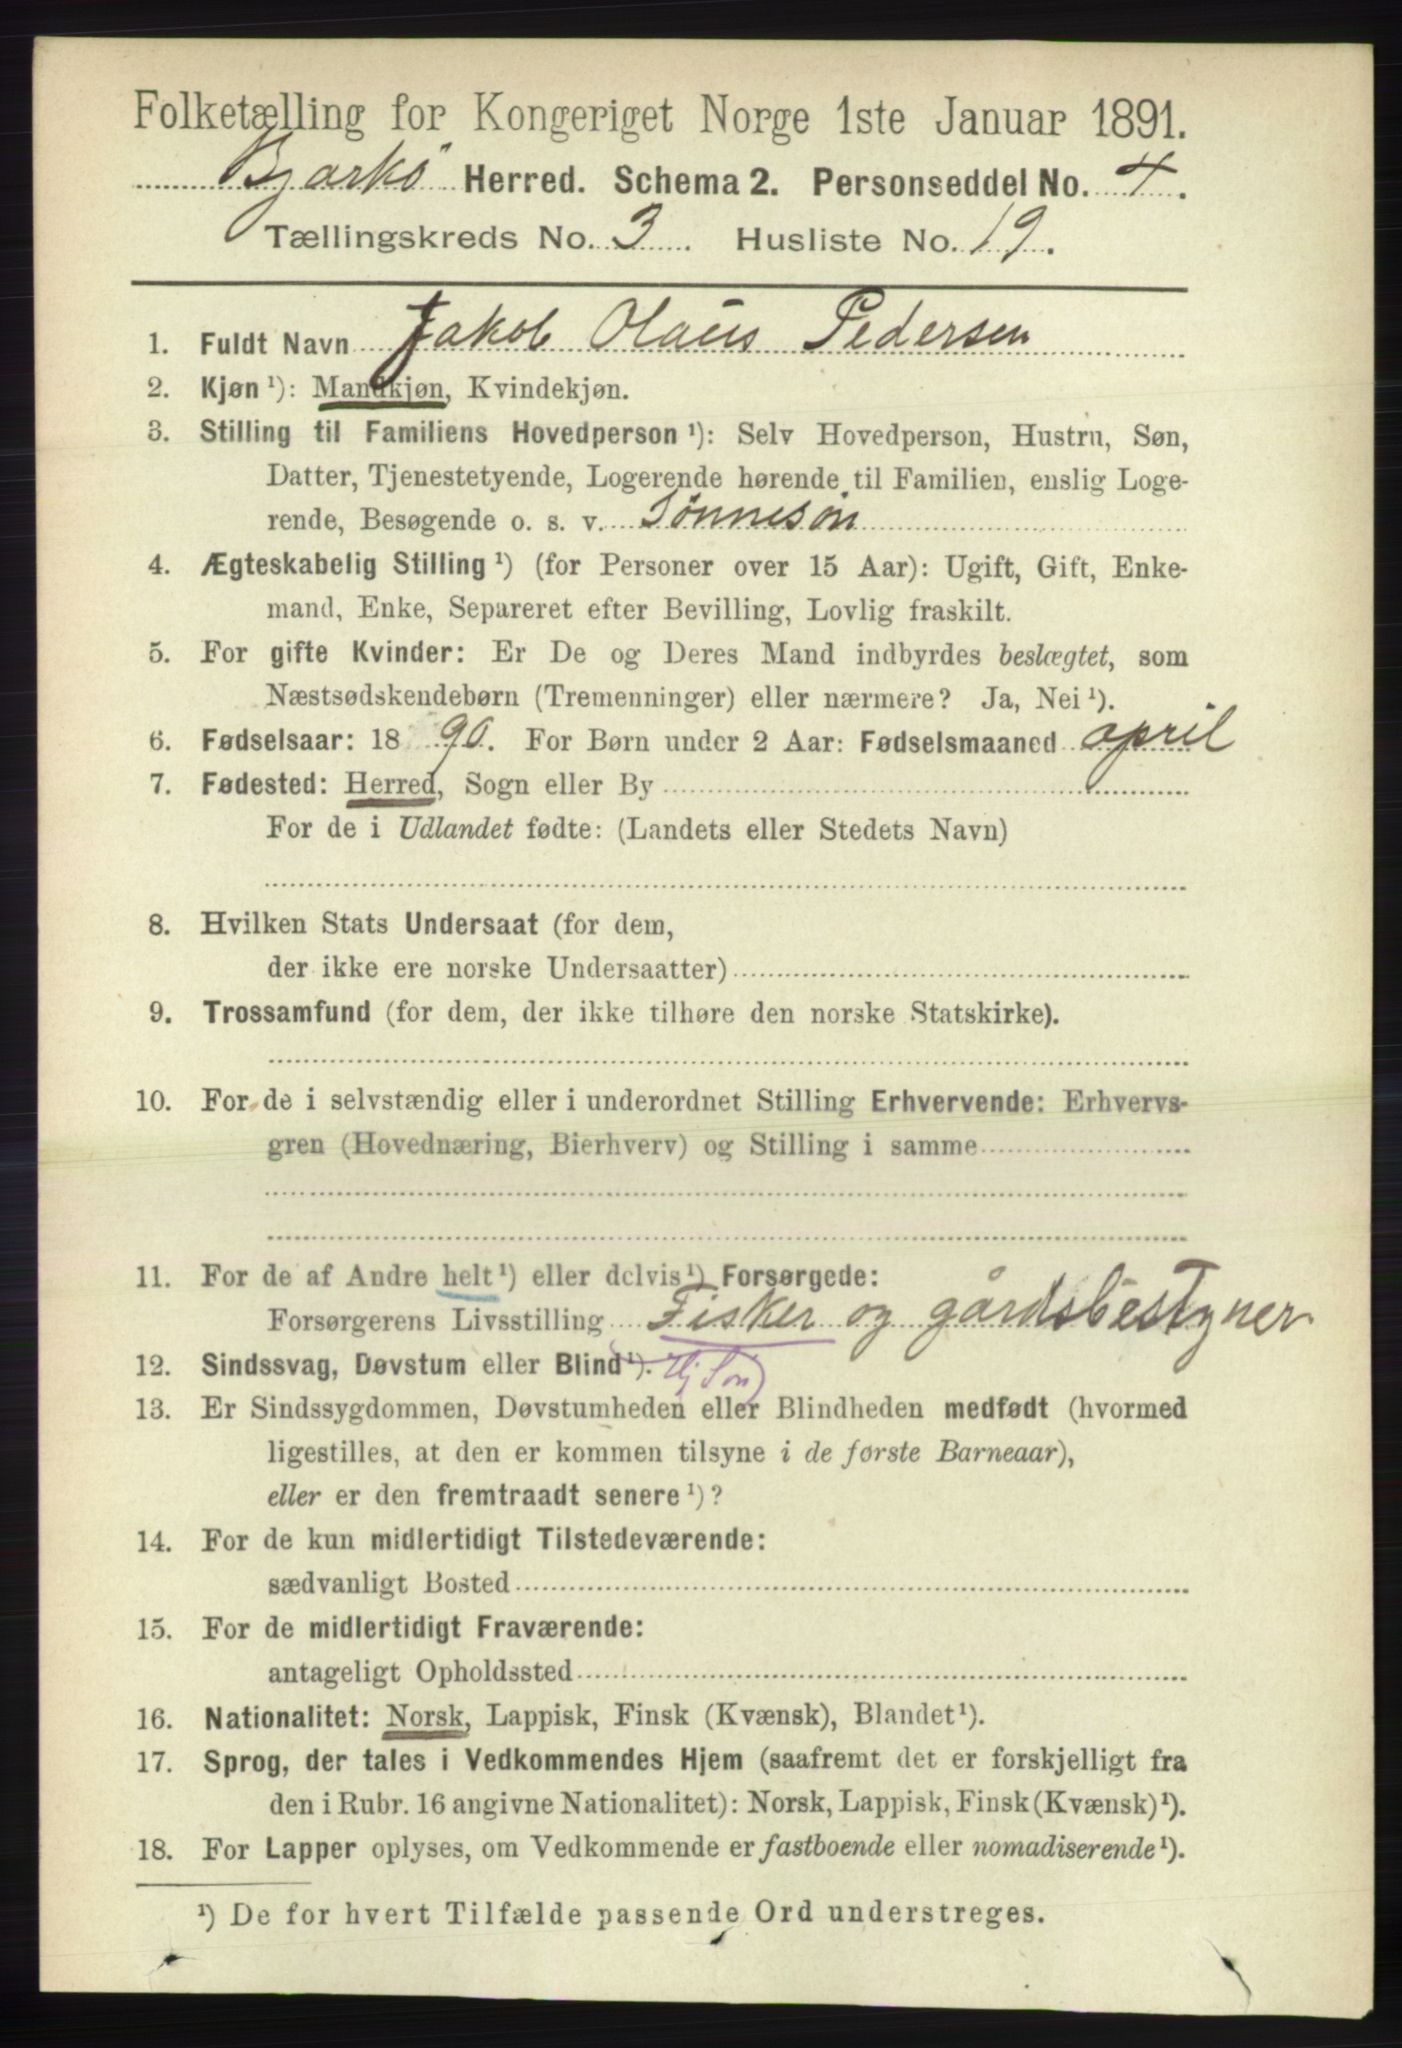 Folketælling for Kongeriget Norge 1ste Januar 1891.
Bjarkö Herred. Schema 2. Personseddel No. 4.
Tællingskreds No. 3. Husliste No. 19.
1. Fuldt Navn Jakob Olaus Pedersen
2. Kjøn ¹): Mandkjøn, Kvindekjøn.
3. Stilling til Familiens Hovedperson ¹): Selv Hovedperson, Hustru, Søn,
Datter, Tjenestetyende, Logerende hørende til Familien, enslig Loge-
rende, Besøgende o. s. v. Sönnesön
4. Ægteskabelig Stilling ¹) (for Personer over 15 Aar): Ugift, Gift, Enke-
mand, Enke, Separeret efter Bevilling, Lovlig fraskilt.
5. For gifte Kvinder: Er De og Deres Mand indbyrdes beslægtet, som
Næstsødskendebørn (Tremenninger) eller nærmere? Ja, Nei ¹).
6. Fødselsaar: 1890. For Børn under 2 Aar: Fødselsmaaned april
7. Fødested: Herred, Sogn eller By
For de i Udlandet fødte: (Landets eller Stedets Navn)
8. Hvilken Stats Undersaat (for dem,
der ikke ere norske Undersaatter)
9. Trossamfund (for dem, der ikke tilhøre den norske Statskirke).
10. For de i selvstændig eller i underordnet Stilling Erhvervende: Erhvervs-
gren (Hovednæring, Bierhverv) og Stilling i samme
11. For de af Andre helt ¹) eller delvis ¹) Forsørgede:
Forsørgerens Livsstilling Fisker og gårdsbestyrer
12. Sindssvag, Døvstum eller Blind ¹).
13. Er Sindssygdommen, Døvstumheden eller Blindheden medfødt (hvormed
ligestilles, at den er kommen tilsyne i de første Barneaar),
eller er den fremtraadt senere ¹)?
14. For de kun midlertidigt Tilstedeværende:
sædvanligt Bosted
15. For de midlertidigt Fraværende:
antageligt Opholdssted
16. Nationalitet: Norsk, Lappisk, Finsk (Kvænsk), Blandet ¹).
17. Sprog, der tales i Vedkommendes Hjem (saafremt det er forskjelligt fra
den i Rubr. 16 angivne Nationalitet): Norsk, Lappisk, Finsk (Kvænsk) ¹).
18. For Lapper oplyses, om Vedkommende er fastboende eller nomadiserende ¹).
¹) De for hvert Tilfælde passende Ord understreges.